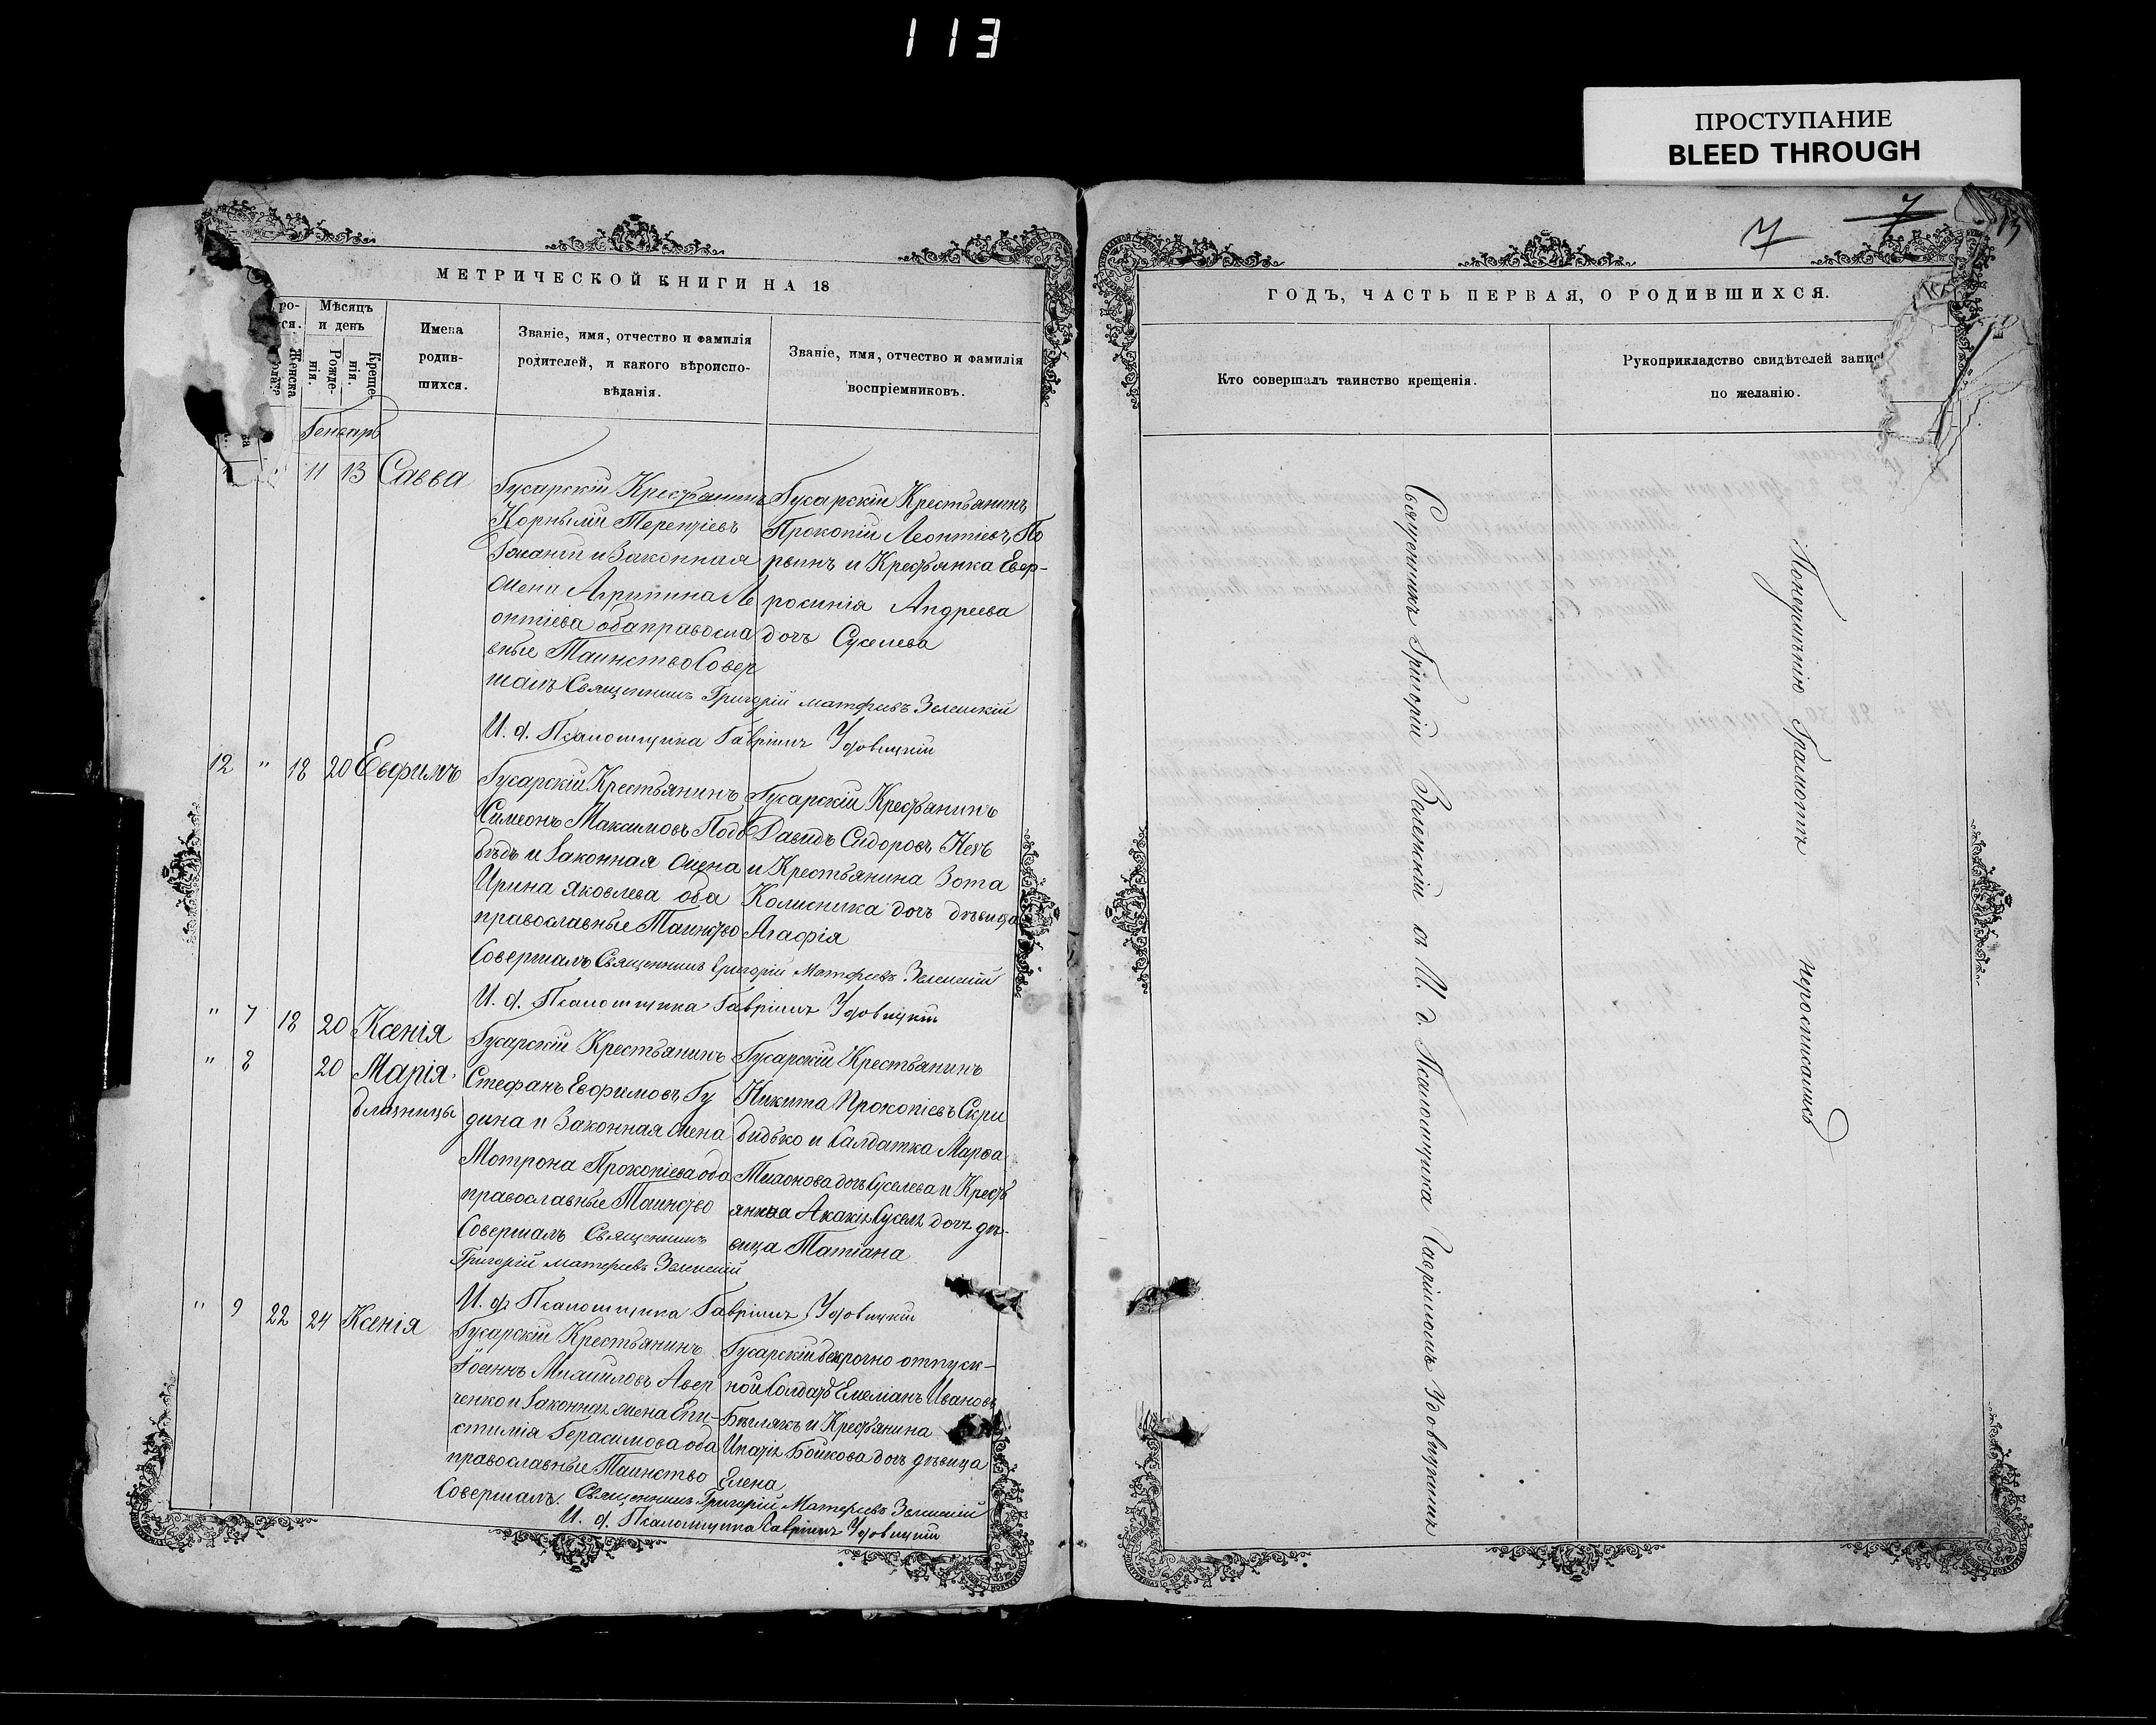 113
ПРОСТУПАНИЕ
BLEED THROUGH
7
7
13
МЕТРИЧЕСКОЙ КНИГИ НА 18
Мѣсяцъ
и день
Женска
Рожде-
нія.
Креще-
нія.
Имена
родив-
шихся.
Званіе, имя, отчество и фамилія
родителей, и какого вѣроиспо-
вѣданія.
Званіе, имя, отчество и фамилія
воспріемниковъ.
Генварь
11 13 Савва
Гусарскій Крестьянинъ
Корнылій Терентіевъ
и Законная
Жена Агрипина Ле
онтіева оба православ
вные Таинство Совер
шалъ Священникъ Григорій Матфеевъ Зеленскій
И. д. Псаломщика Гавріилъ Удовицкій
Гусарскій Крестьянинъ
Прокопій Леонтіевъ По
рвинъ и Крестьянка Евф-
росинія Андреева
дочь Суслева
12 " 18 20 Евфимъ
Гусарскій Крестьянинъ
Симеонъ Максимовъ Подо
бѣдъ и Законная Жена
Ирина Яковлева оба
православные Таинство
Совершалъ Священникъ Григорій Матфеевъ Зеленскій
И. д. Псаломщика Гавріилъ Удовицкій
Гусарскій Крестьянинъ
Давидъ Сидоровъ
и Крестьянина Зота
Колисника дочь дѣвица
Агафія
" 7 18 20 Ксенія
" 8 20 Марія
близницы
Гусарскій Крестьянинъ
Стефанъ Евфимовъ Гу
дина и Законная Жена
Мотрона Прокопіева оба
православные Таинство
Совершалъ Священникъ
Григорій Матфеевъ Зеленскій
И. д. Псаломщика Гавріилъ Удовицкій
Гусарскій Крестьянинъ
Никита Прокопіевъ Скри
бидько и Салдатка Марфа
Тихонова дочь Суслева и Кресть
янина Акакія Сусля дочь дѣ-
вица Татіана
" 9 22 24 Ксенія
Гусарскій Крестьянинъ
Іоаннъ Михаиловъ Авер
ченко и Законная жена Епи-
стимія Герасимова оба
православные Таинство
Совершалъ. Священникъ Григорій Матфеевъ Зеленскій
И. д. Псаломщика Гавріилъ Удовицкій
Гусарскій безсрочно отпуск-
ной Солдатъ Емеліанъ Ивановъ
и Крестьянина
Игнатія Бойкова дочь дѣвица
Елена
ГОДЪ, ЧАСТЬ ПЕРВАЯ, О РОДИВШИХСЯ.
Кто совершалъ таинство крещенія.
Рукоприкладство свидѣтелей запис
по желанію.
Священникъ Григорій Зеленскій съ И. д. Псаломщика Гавріиломъ Удовицкимъ
По неумѣнію Грамотѣ неросписались